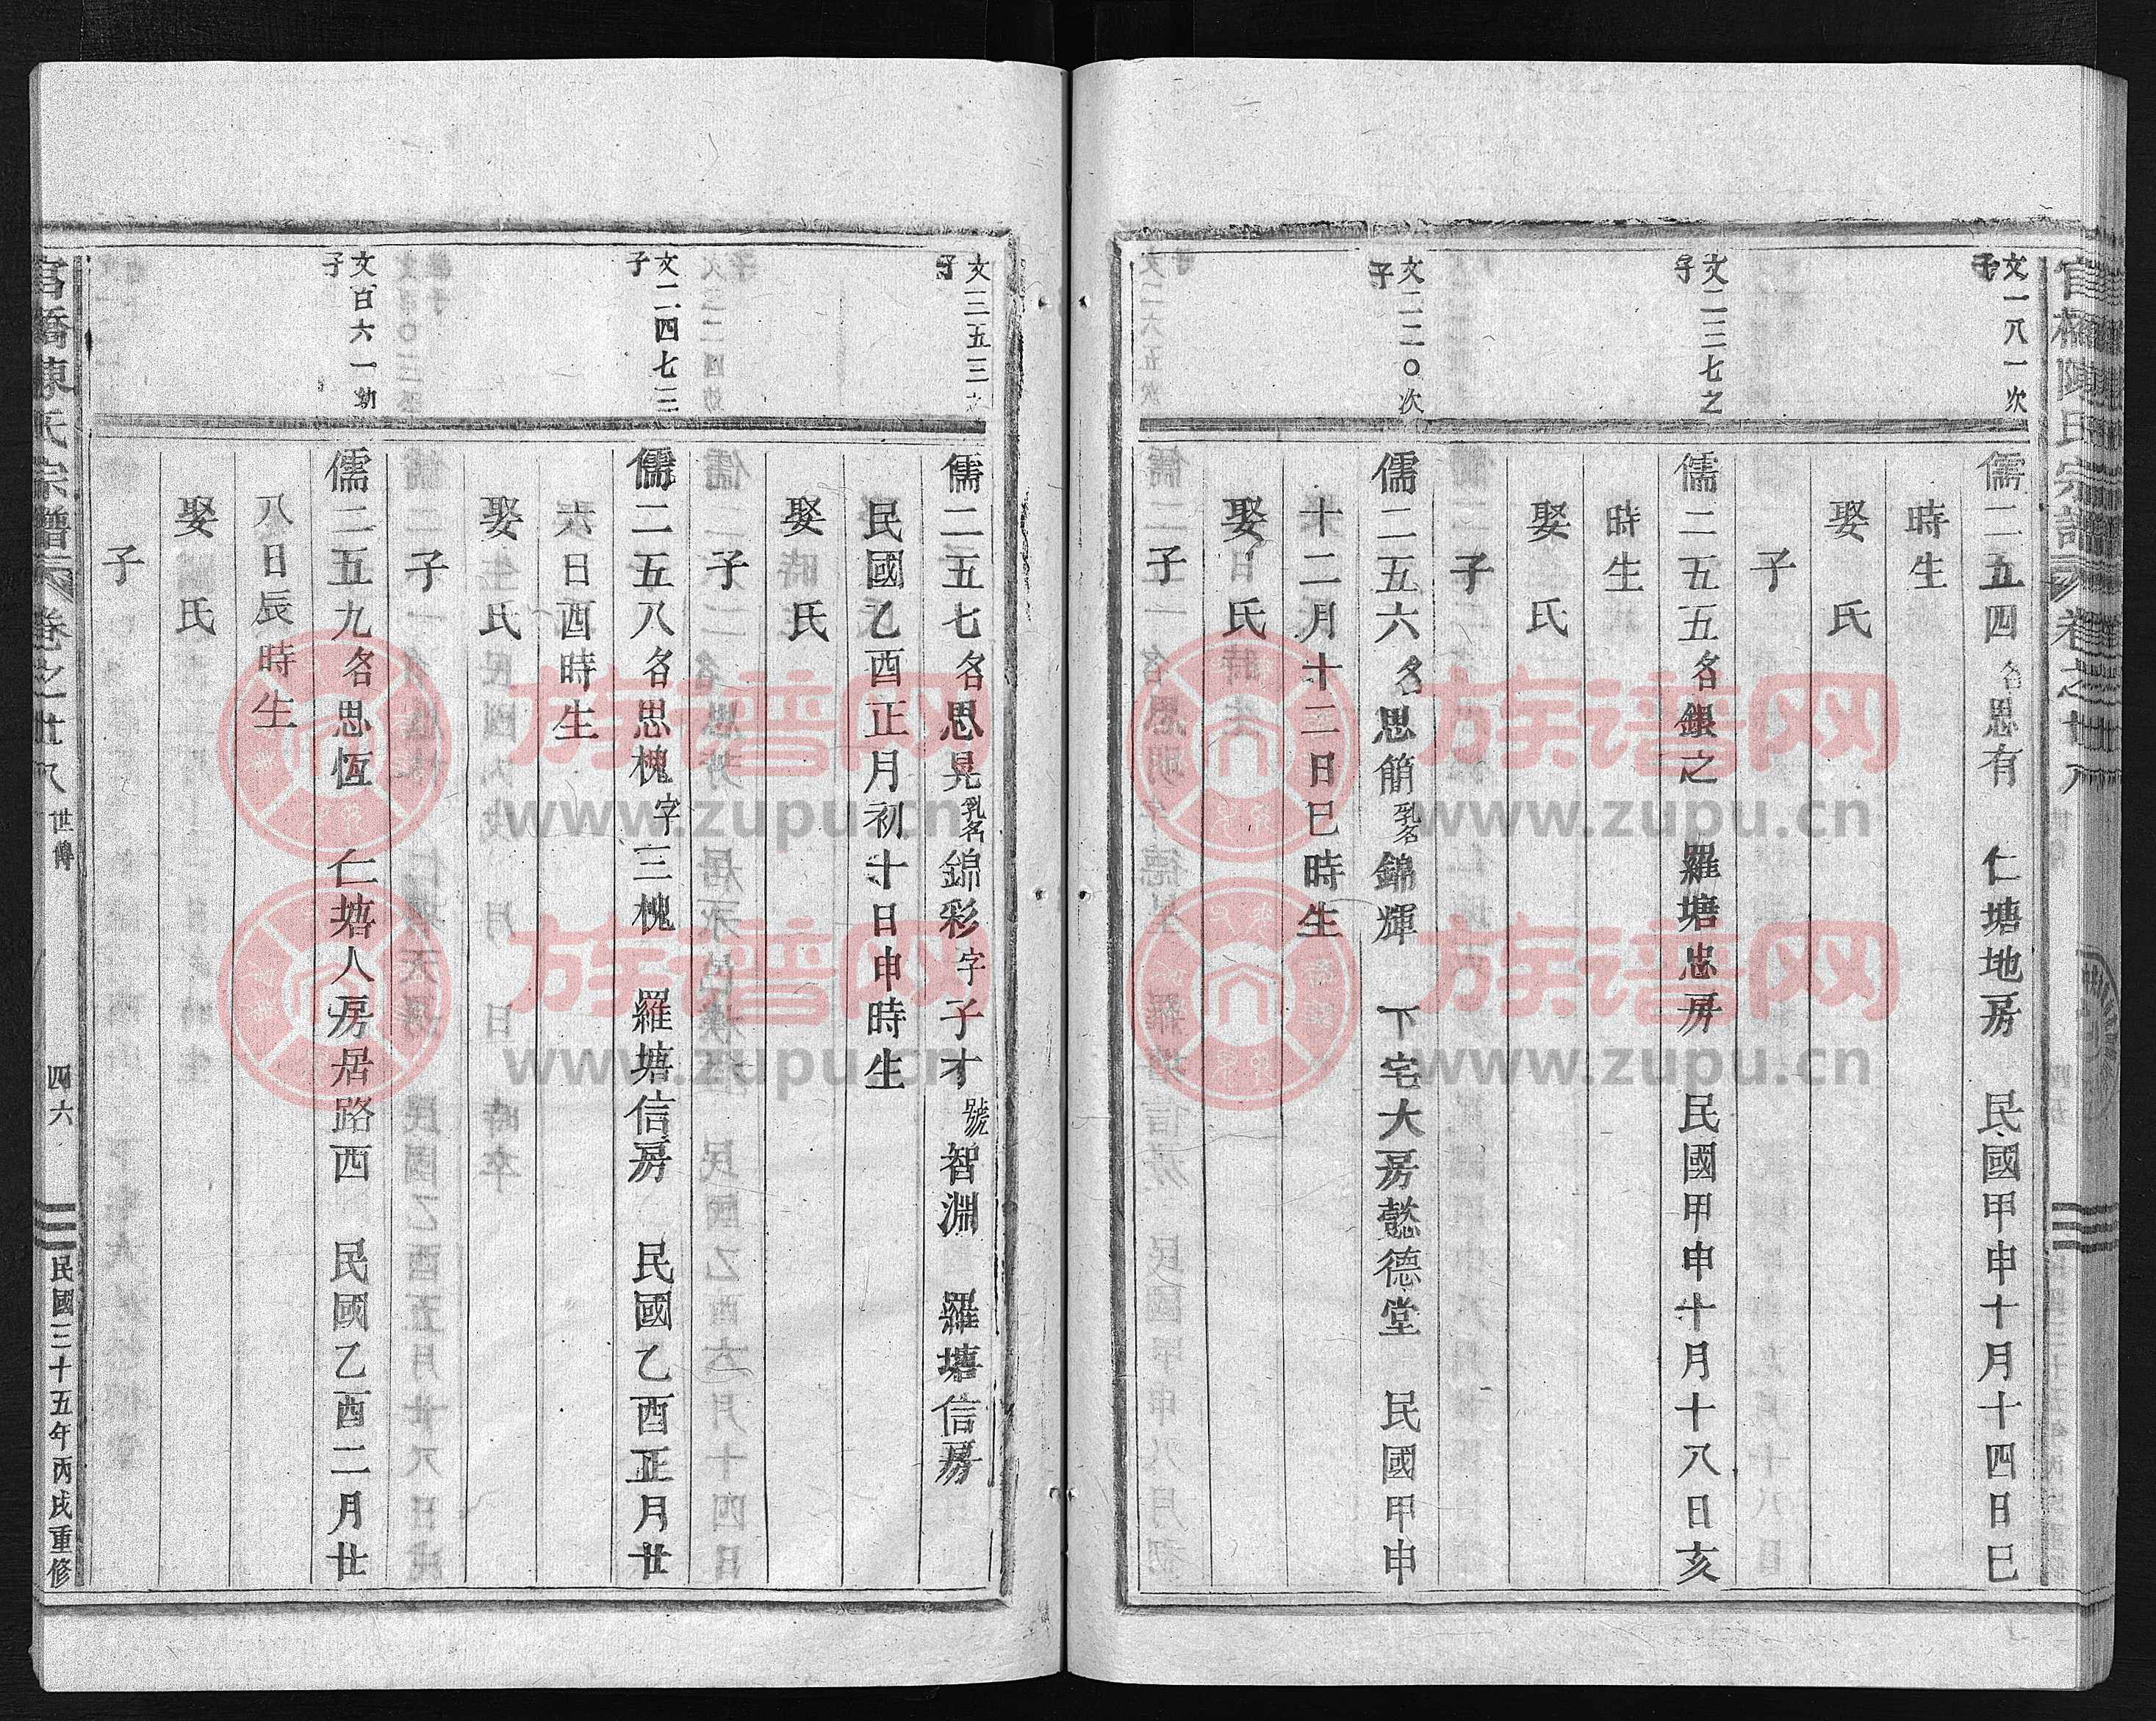 官橋陳氏宗譜 卷之廿八
文一八一次
子
儒二五四 名思有 仁塘地房 民國甲申十月十四日巳
時生
娶 氏
子
文二三七之
子
儒二五五名銀之 羅塘忠房 民國甲申十月十八日亥
時生
娶 氏
子
文二二〇次
子
儒二五六名思簡乳名錦輝 下宅大房懿德堂 民國甲申
十二月十二日巳時生
娶 氏
子
文三五三
子
儒二五七名思晃乳名錦彩字子才號智淵 羅塘信房
民國乙酉正月初十日申時生
娶 氏
子
文二四七三
子
儒二五八名思槐字三槐 羅塘信房 民國乙酉正月廿
六日酉時生
娶 氏
子
文百六一幼
子
儒二五九名思恆 仁塘人房居路西 民國乙酉二月廿
八日辰時生
娶 氏
子
官橋陳氏宗譜 卷之廿八 世傳 四六 民國三十五年丙戌重修
族谱网
www.zupu.cn
族谱网
www.zupu.cn
族谱网
www.zupu.cn
族谱网
www.zupu.cn